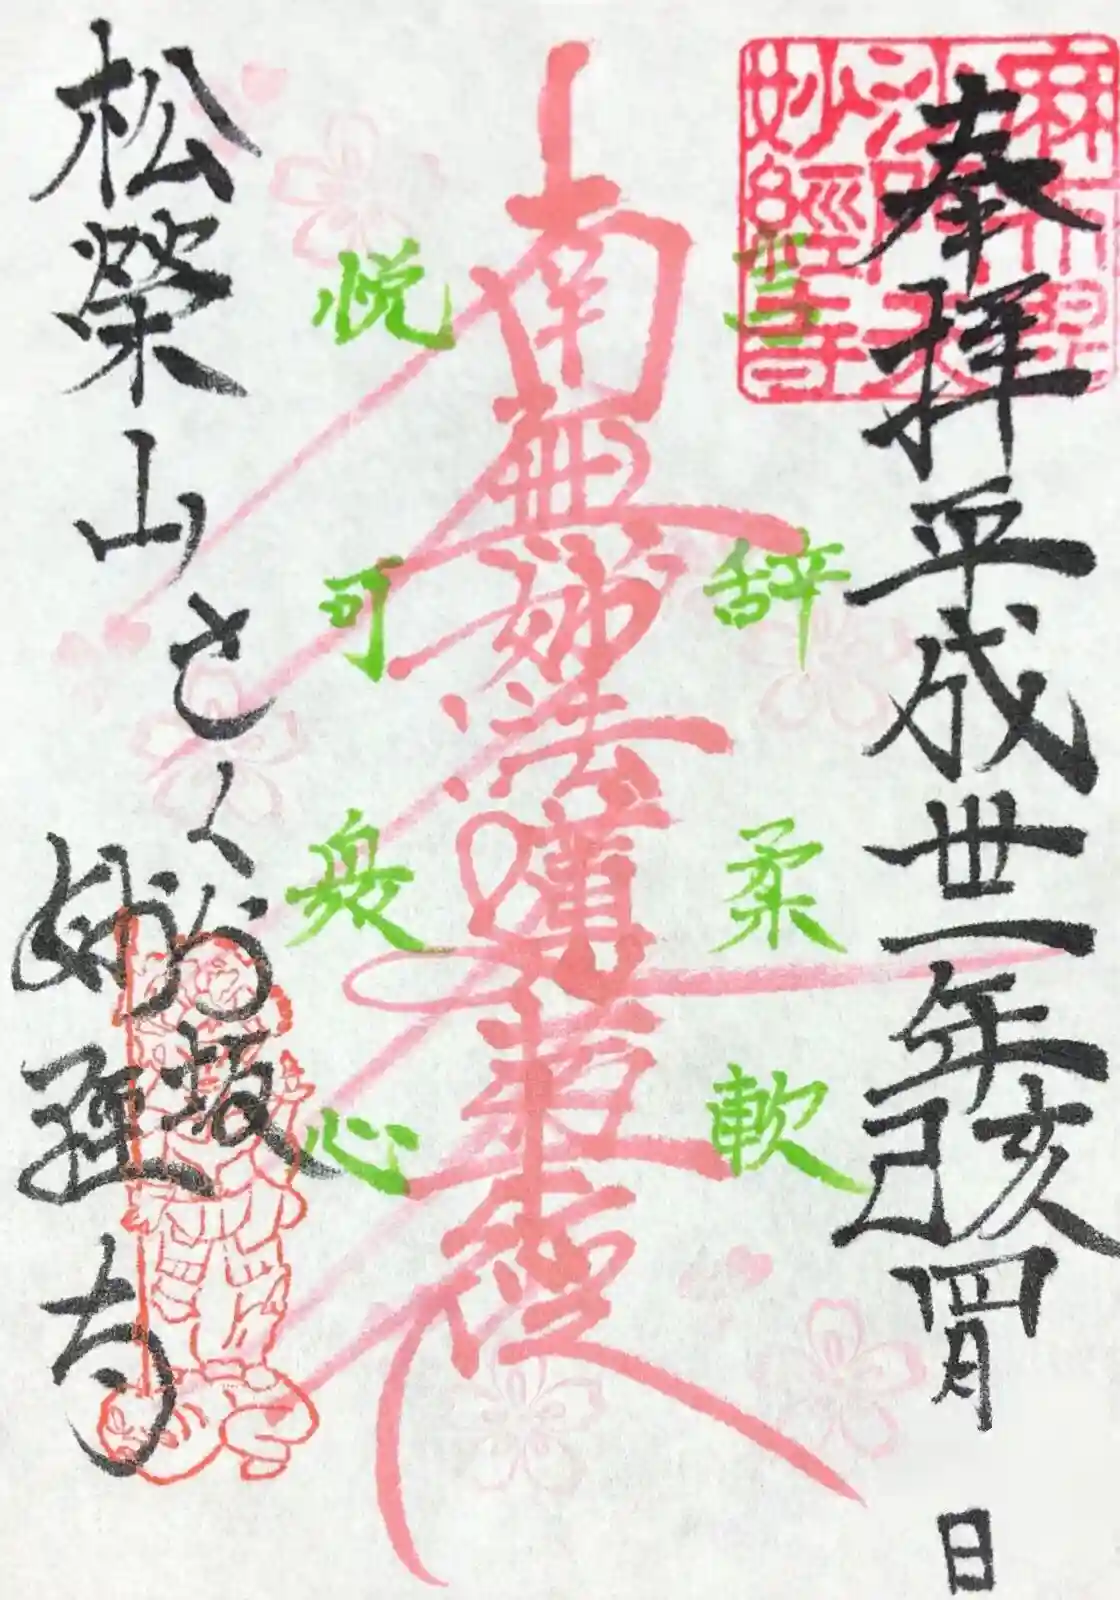 奉拝平成卅一年己亥四月 日
言辞柔軟
南無妙法蓮華経
悦可衆心
松榮山さくら坂
妙経寺
妙經寺